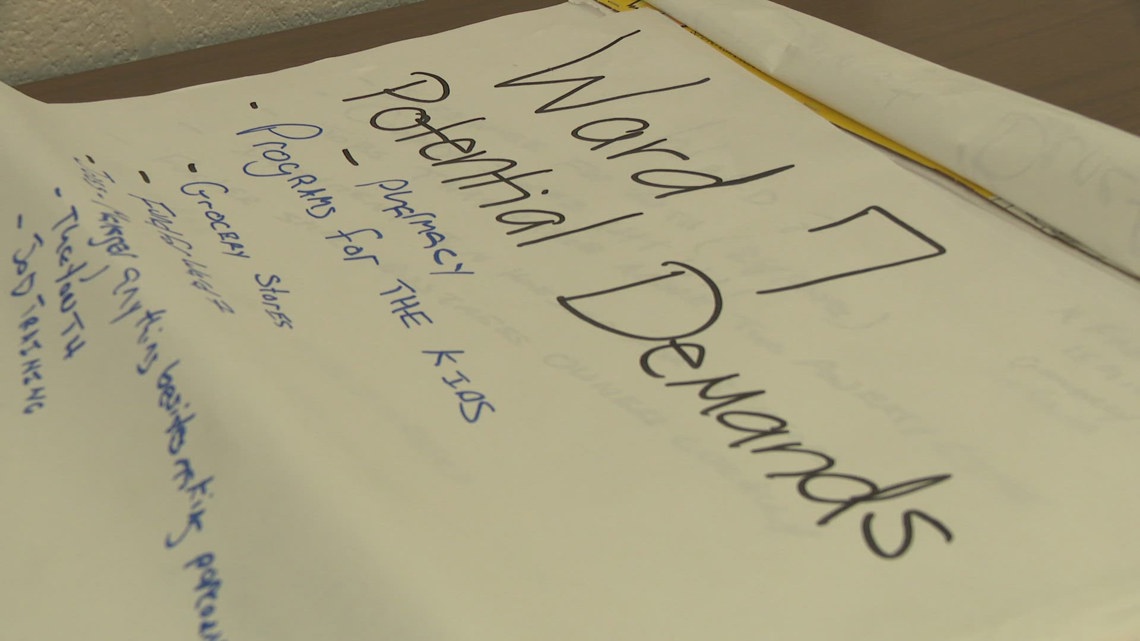 Ward 7
Potential Demands
- PHARMACY
- PROGRAMS for THE KIDS
- GROCERY STORES
-
- anything besides making
- The YOUTH
- JOB TRAINING